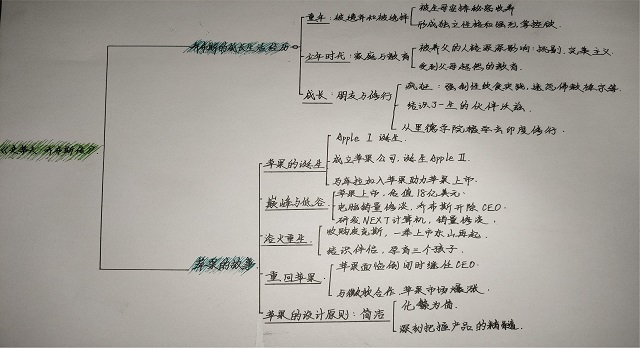 《史蒂夫·乔布斯传》
乔布斯的成长生活经历
童年：被遗弃和被选择
被生母安排给养父母收养
形成独立性格和强烈掌控欲.
少年时代：家庭与教育
被养父的人格深深影响：完美主义
受到父母超然的教育.
成长：朋友与修行
疯狂：强制性饮食实验，迷恋佛教禅宗等
结识了一生的伙伴沃兹.
从里德学院辍学去印度修行.
苹果的故事
苹果的诞生
Apple I 诞生.
成立苹果公司，诞生 Apple II.
马库拉加入苹果助力苹果上市.
巅峰与低谷
苹果上市，估值18亿美元.
电脑销量惨淡，乔布斯开除CEO.
研发NEXT计算机，销量惨淡.
浴火重生
收购皮克斯，一举上市东山再起.
结识伴侣，孕育三个孩子.
重回苹果
苹果面临倒闭时继任CEO.
与微软合作，苹果市场爆涨.
苹果的设计原则：简洁
化繁为简.
深刻把握产品的精髓.